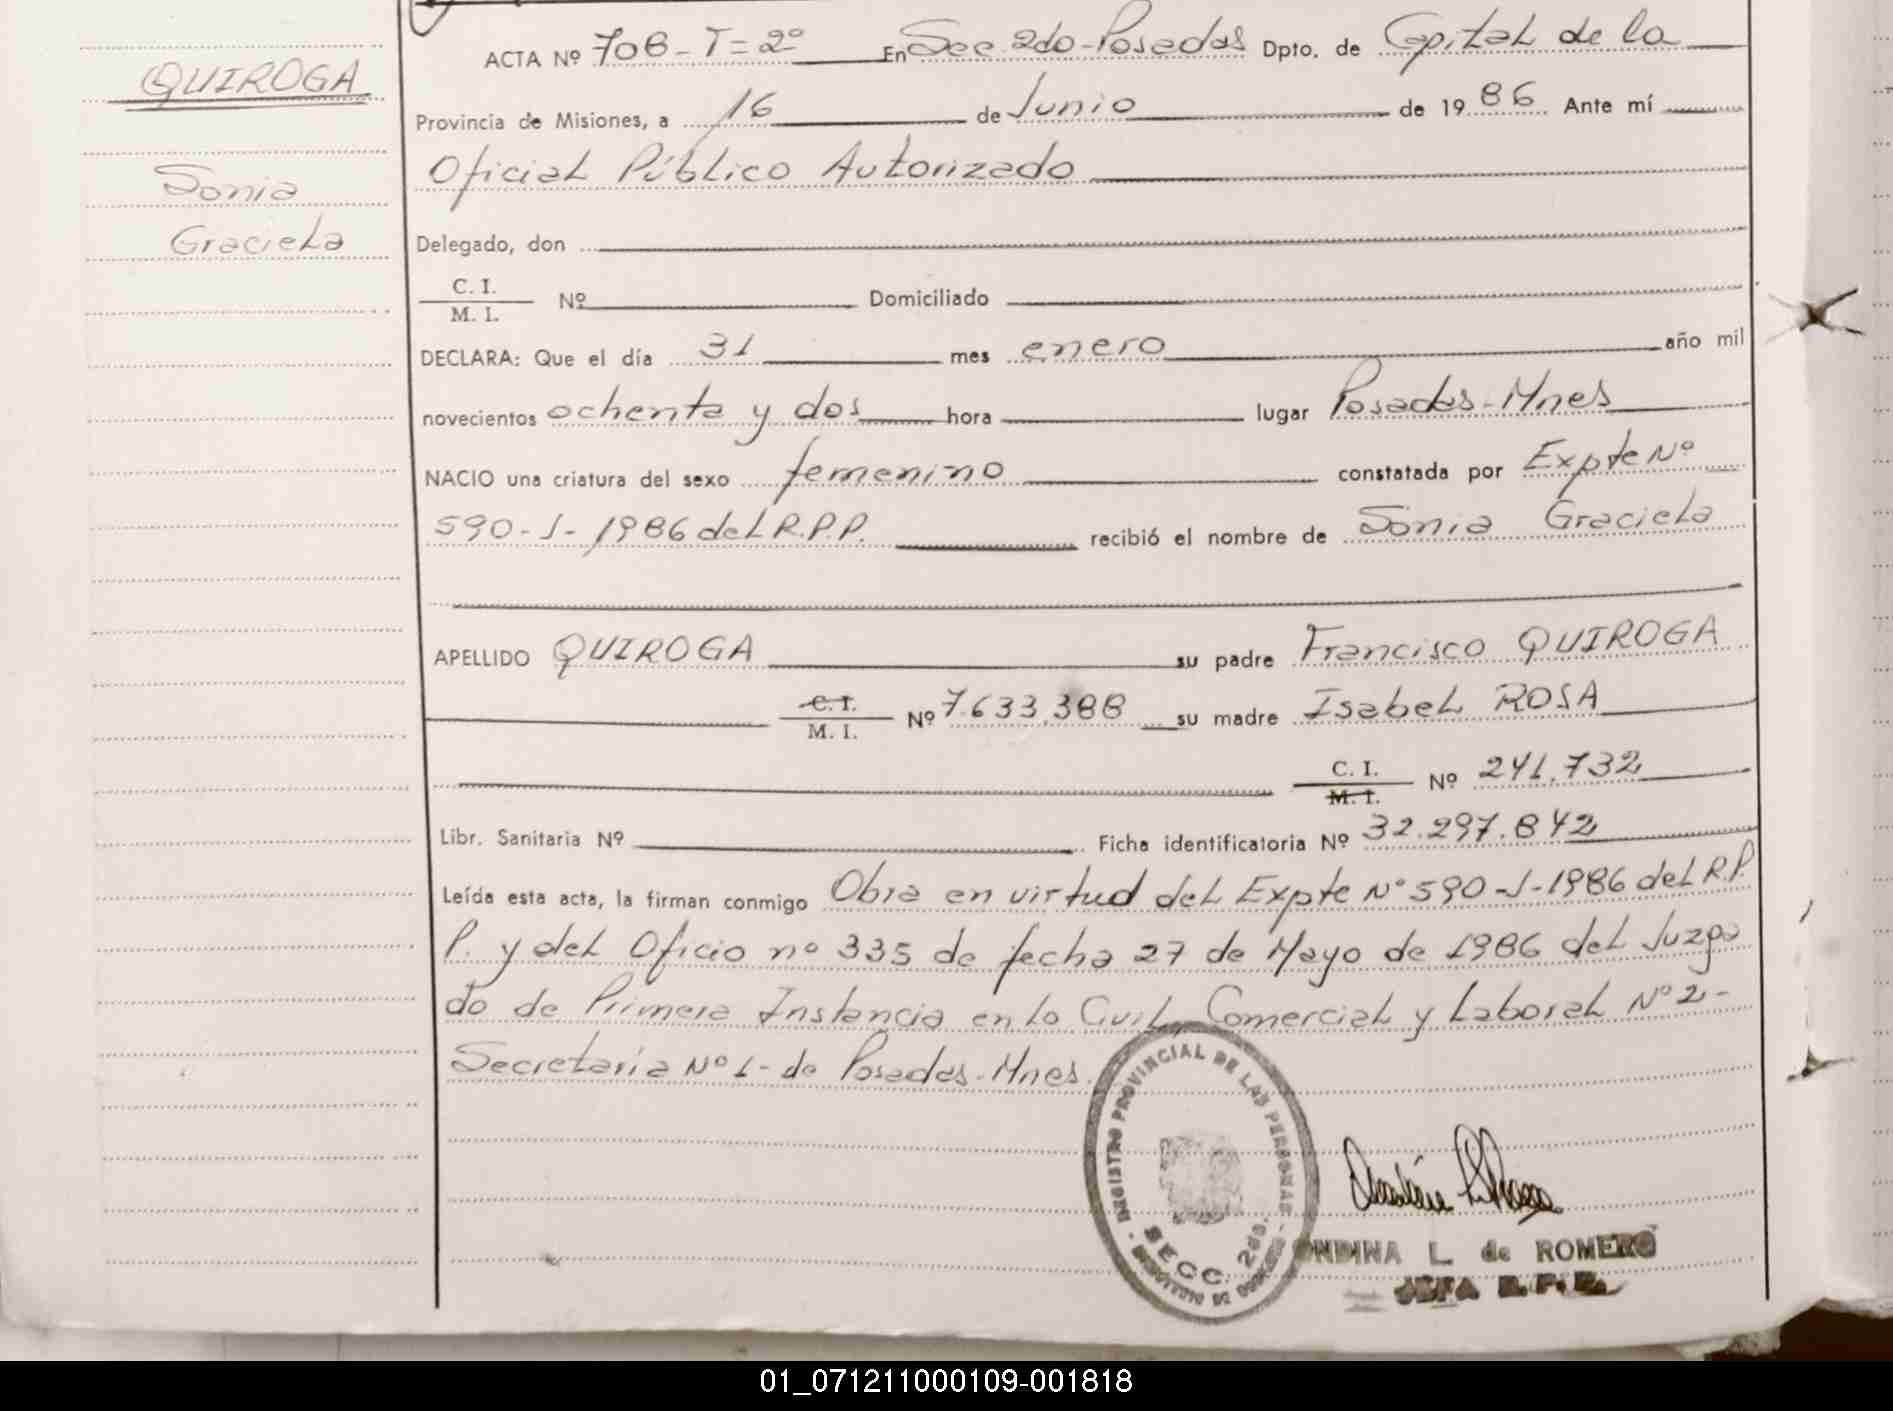 QUIROGA
Sonia
Graciela
ACTA Nº 708-T=2º En Sec. 2do-Posadas Dpto. de Capital de la
Provincia de Misiones, a 16 de Junio de 1986 Ante mí
Oficial Público Autorizado
Delegado, don
C. I.
M. I. Nº Domiciliado
DECLARA: Que el día 31 mes enero año mil
novecientos ochenta y dos hora lugar Posadas-Mnes
NACIO una criatura del sexo femenino constatada por Expte Nº
590-J-1986 del R.P.P. recibió el nombre de Sonia Graciela
APELLIDO QUIROGA su padre Francisco QUIROGA
C. I.
M. I. Nº 7.633.388 su madre Isabel ROSA
C. I.
M. I. Nº 241.732
Libr. Sanitaria Nº Ficha identificatoria Nº 32.297.842
Leída esta acta, la firman conmigo Obra en virtud del Expte Nº 590-J-1986 del R.P.
P. y del Oficio nº 335 de fecha 27 de Mayo de 1986 del Juzga
do de Primera Instancia en lo Civil, Comercial y Laboral Nº 2-
Secretaría Nº 1-de Posadas-Mnes.
REGISTRO PROVINCIAL DE LAS PERSONAS
SECC. 2da.
ONDINA L. de ROMERO
JEFA R.P.P.
01_071211000109-001818